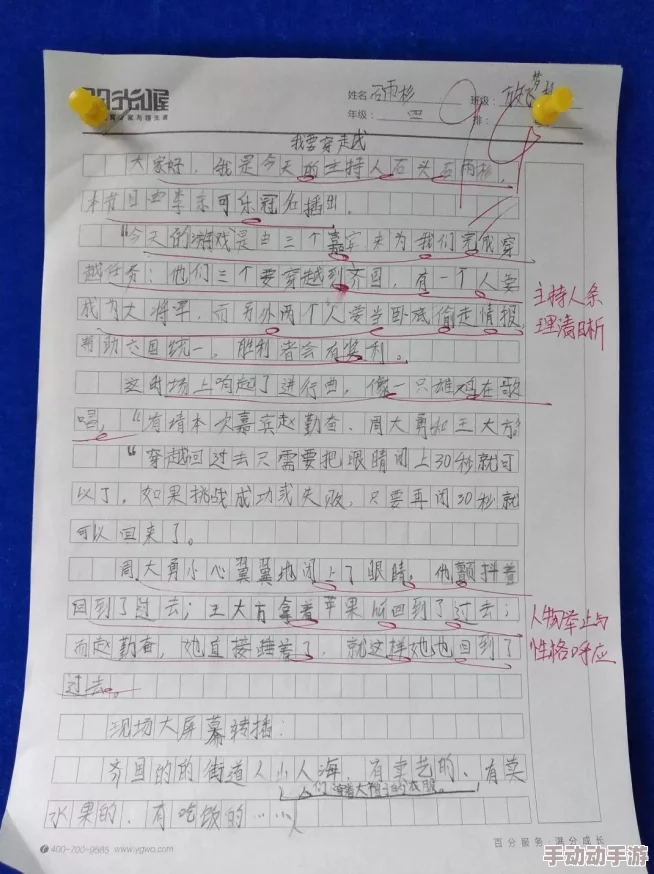 阳光喔
姓名 石雨杉 班级:
年级: 四 班:
我要穿走戏
大家好,我是今天的主持人石头石雨杉,
本节目由李东可乐冠名播出。
“今天的游戏是由三个嘉宾来为我们完成穿
越任务:他们三个要穿越到齐国,有一个人要
成为大将军,而另外两个人要当卧底偷走情报,
帮助六国统一,胜利者会有奖利。
这时场上响起了进行曲,像一只雄鸡在歌
唱,“有请本次嘉宾赵勤奋、周大勇和王大方”
“穿越回过去只需要把眼睛闭上30秒就可
以了,如果挑战成功或失败,只要再闭30秒就
可以回来了。
周大勇小心翼翼地闭上了眼睛,他颤抖着
回到了过去;王大方拿着苹果 回到了过去;
而赵勤奋,她直接睡着了,就这样她也回到了
过去。
现场大屏幕转播:
齐国的的街道人山人海,有卖艺的、有买
人们穿着大袖子的衣服。
水果的,有吃饭的……
主持人条
理清晰
人物举止与
性格呼应
400-700-9585 www.ygwo.com
百分服务·满分成长
手动动手游